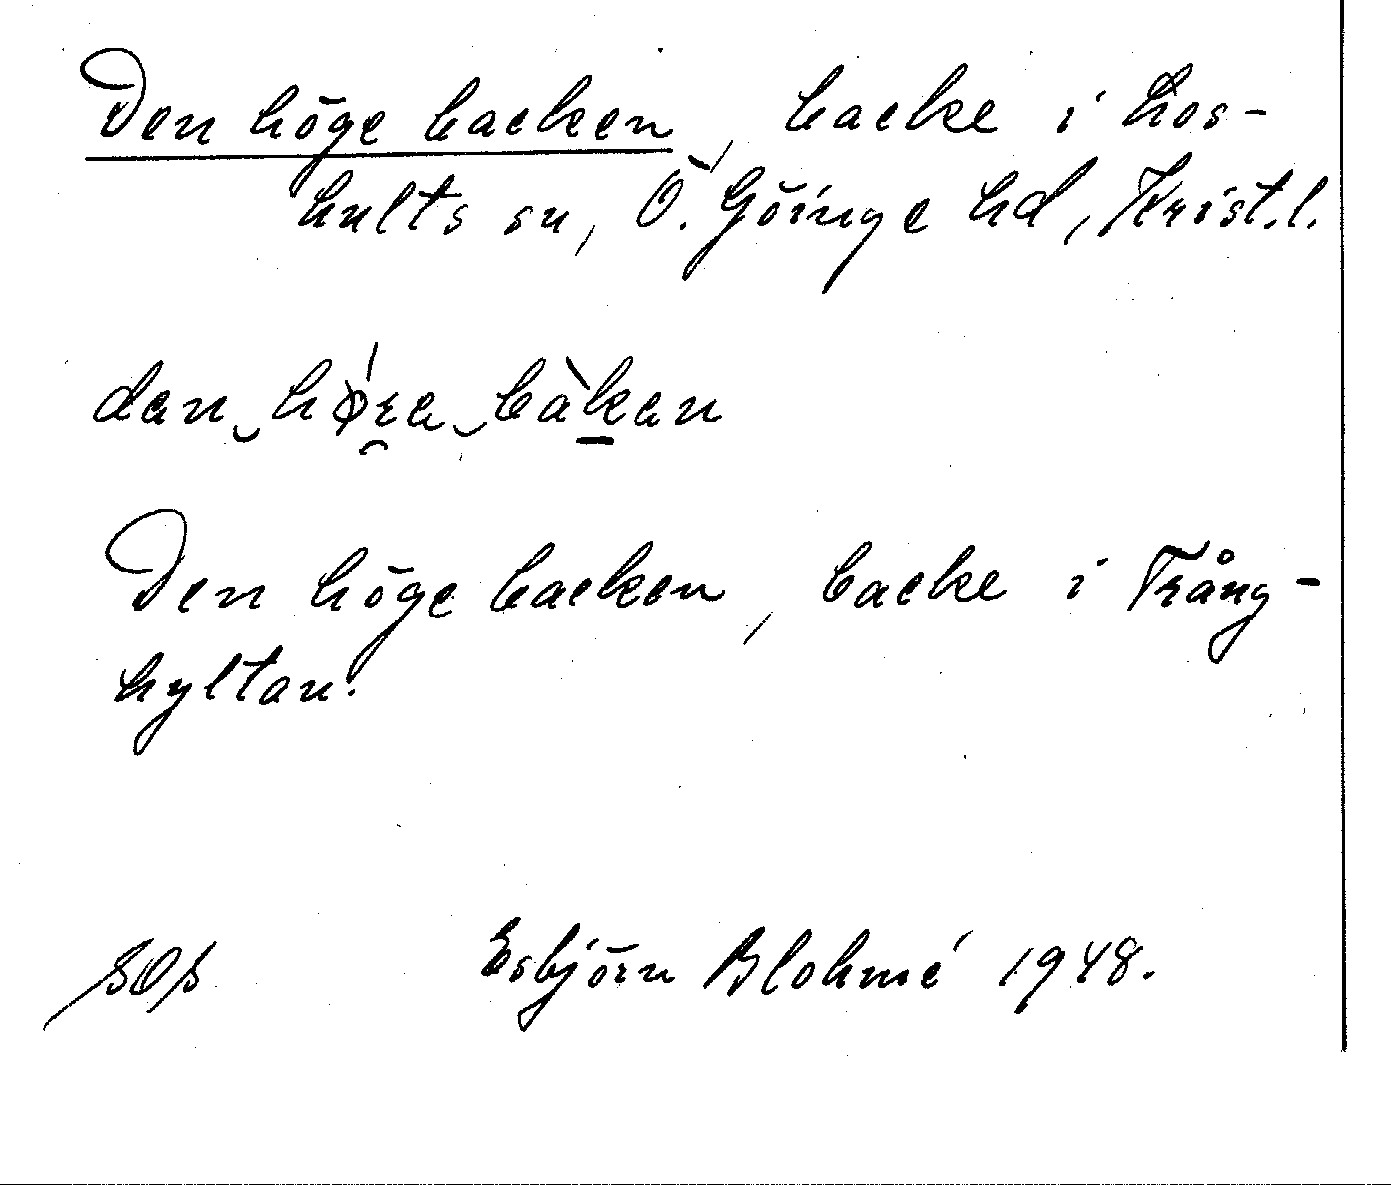 Den höge backen, backe i Los-
hults sn, Ö. Göinge hd, Krist.l.
Den höge backen, backe i Trång-
hyltan.
SOA Esbjörn Blohmé 1948.